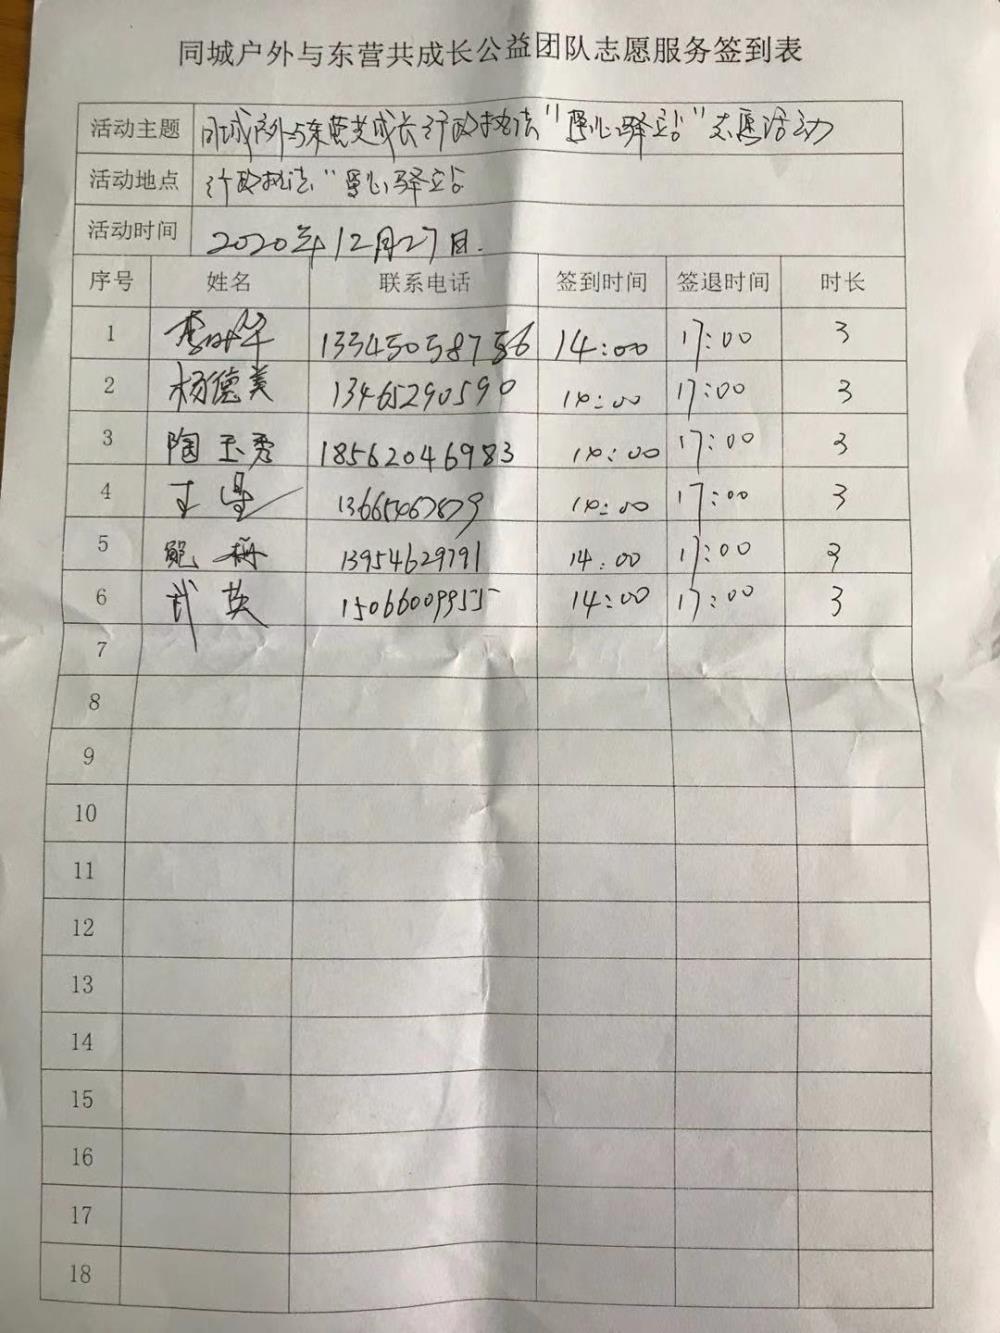 同城户外与东营共成长公益团队志愿服务签到表
活动主题 同城户外与东营共成长行政执法“暖心驿站”志愿活动
活动地点 行政执法“暖心驿站
活动时间 2020年12月27日.
序号 姓名 联系电话 签到时间 签退时间 时长
1 14:00 17:00 3
2 杨德美 13465290590 14:00 17:00 3
3 陶玉秀 18562046983 14:00 17:00 3
4 14:00 17:00 3
5 鲍梅 13954629791 14:00 17:00 3
6 武英 15066009955 14:00 17:00 3
7
8
9
10
11
12
13
14
15
16
17
18